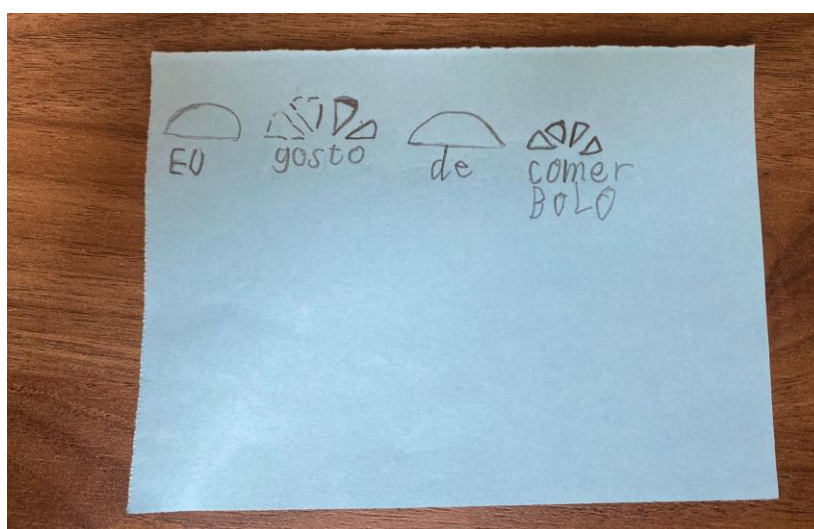 EU gosto de comer
BOLO